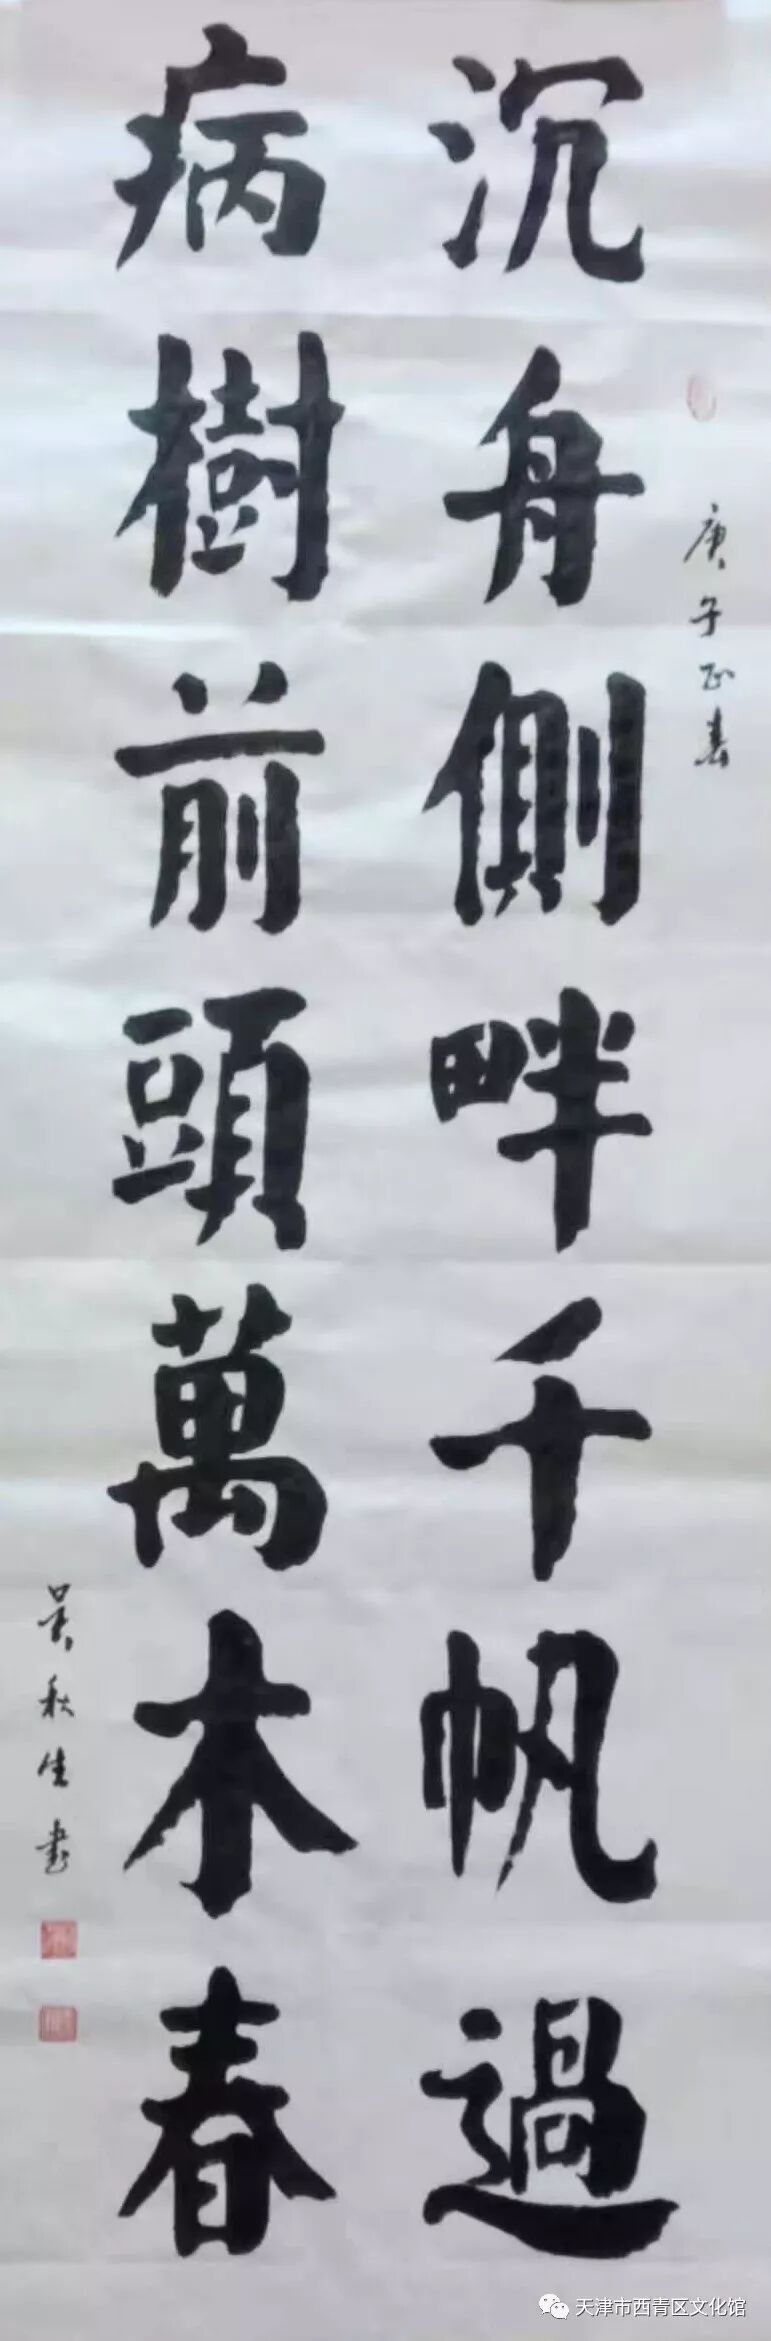 庚子正春
沉舟側畔千帆過
病樹前頭萬木春
吴秋生書
天津市西青区文化馆